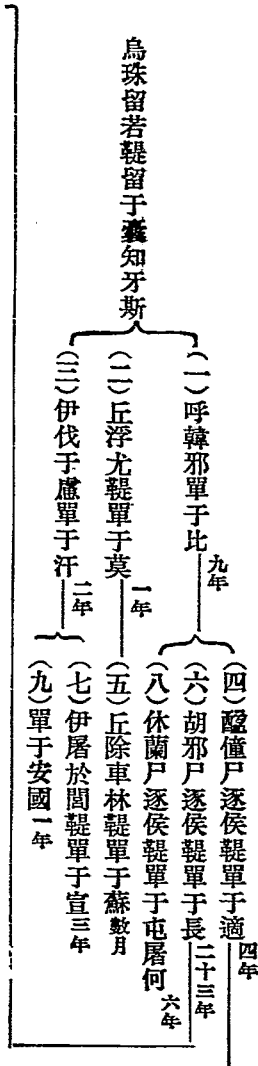 烏珠留若鞮留于囊知牙斯
(一)呼韓邪單于比 九年
(二)丘浮尤鞮單于莫 一年
(三)伊伐于慮單于汗 二年
(四)醢僮尸逐侯鞮單于適 四年
(六)胡邪尸逐侯鞮單于長 二十三年
(八)休蘭尸逐侯鞮單于屯屠何 六年
(五)丘除車林鞮單于蘇 數月
(七)伊屠於閭鞮單于宣 三年
(九)單于安國 一年